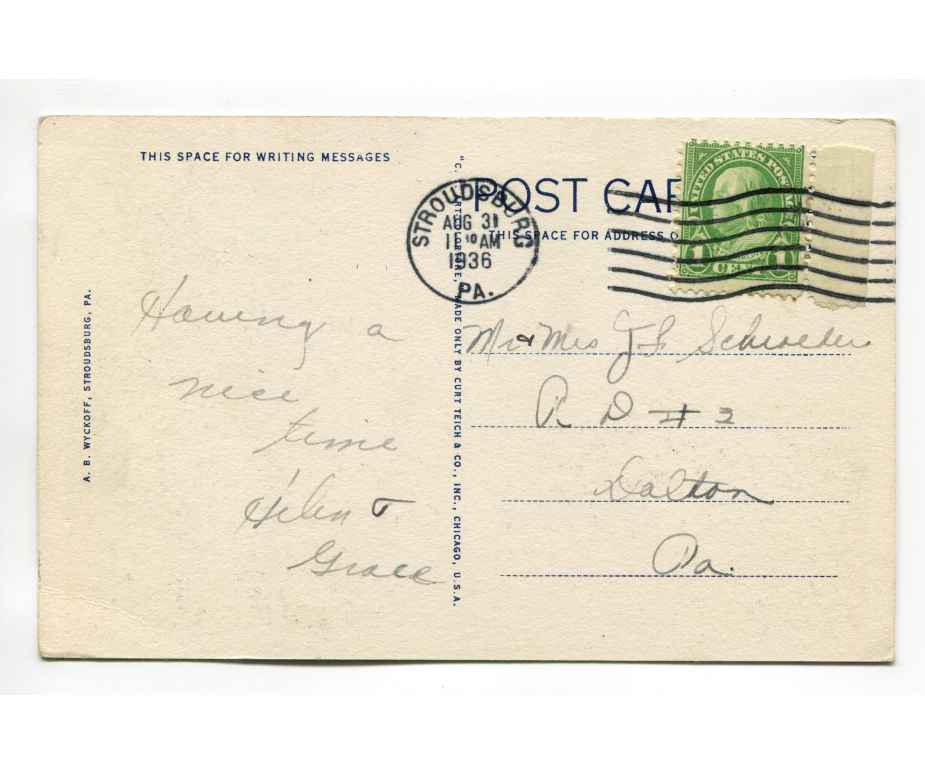 THIS SPACE FOR WRITING MESSAGES
POST CAR
THIS SPACE FOR ADDRESS O
UNITED STATES POST
1 CENT 1
STROUDSBURG
AUG 31
1936
PA.
Having a
nice
time
Helen &
Grace
Mr & Mrs J F Schroeder
R D # 2
Dalton
Pa.
A. B. WYCKOFF, STROUDSBURG, PA.
MADE ONLY BY CURT TEICH & CO., INC., CHICAGO, U.S.A.